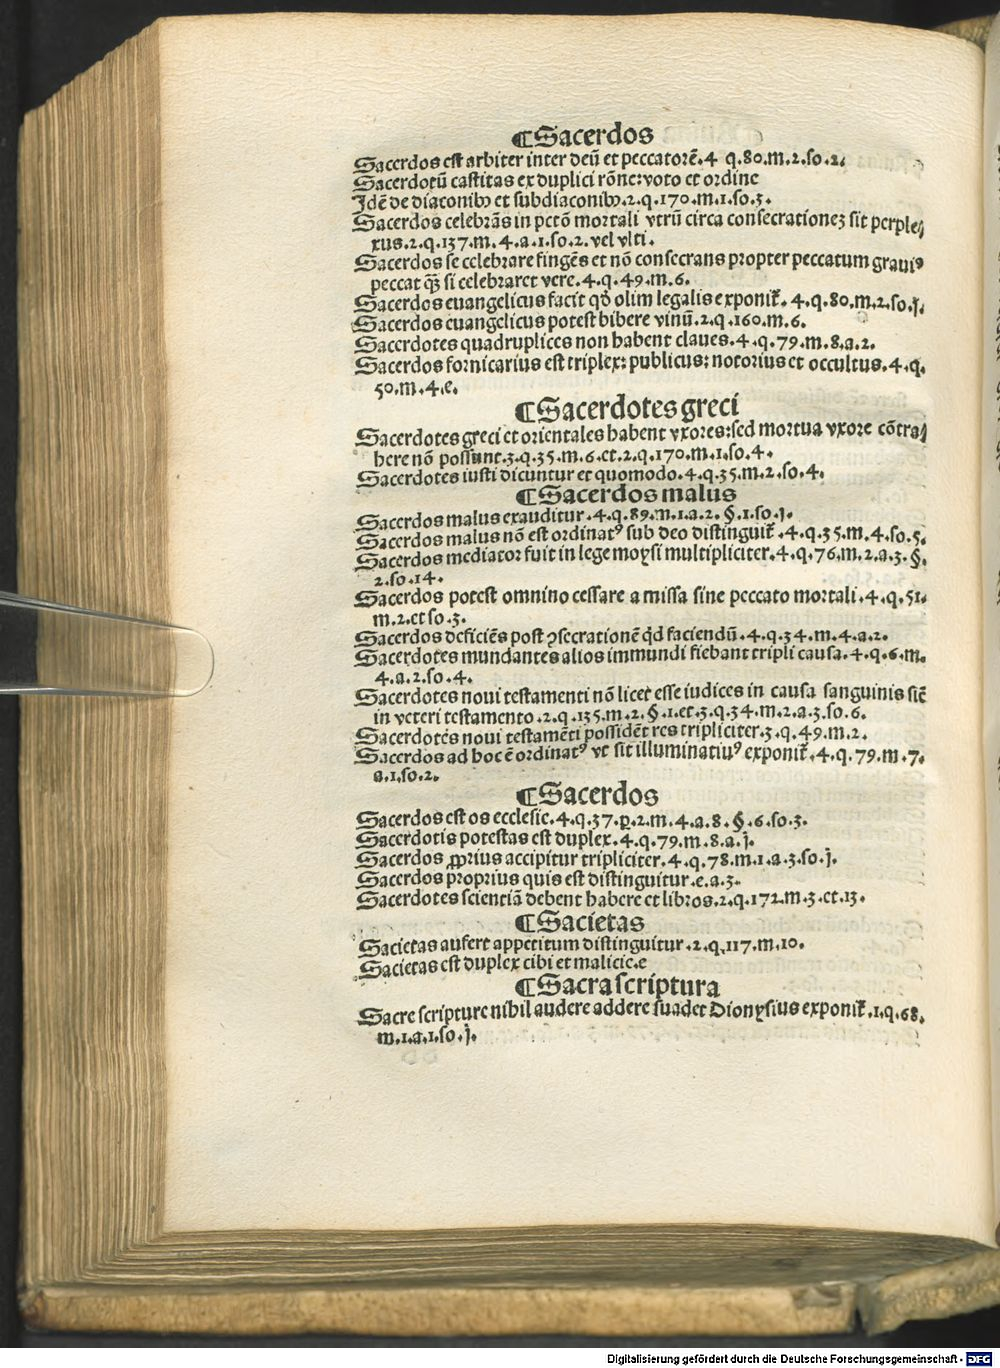 ¶Sacerdos
Sacerdos est arbiter inter deū et peccatorē.4 q.80.m.2.so.2.
Sacerdotū castitas ex duplici rōne:voto et ordine
Jdē de diaconibꝰ et subdiaconibꝰ.2.q.170.m.1.so.3.
Sacerdos celebrās in pctō mortali vtrū circa consecrationeʒ sit perple⸗
xus.2.q.137.m.4.a.1.so.2.vel vlti.
Sacerdos se celebrare fingēs et nō consecrans propter peccatum grauiꝰ
peccat q̄ȝ si celebraret vere.4.q.49.m.6.
Sacerdos euangelicus facit qd̄ olim legalis exponit̄.4.q.80.m.2.so.j.
Sacerdos euangelicus potest bibere vinū.2.q.160.m.6.
Sacerdotes quadruplices non habent claues.4.q.79.m.8.a.2.
Sacerdos fornicarius est triplex:publicus:notorius et occultus.4.q.
50.m.4.e.
¶Sacerdotes greci
Sacerdotes greci et orientales habent vxores:sed mortua vxore cōtra⸗
here nō possunt.3.q.35.m.6.et.2.q.170.m.1.so.4.
Sacerdotes iusti dicuntur et quomodo.4.q.35.m.2.so.4.
¶Sacerdos malus
Sacerdos malus exauditur.4.q.89.m.1.a.2.§.1.so.j.
Sacerdos malus nō est ordinatꝰ sub deo distinguit̄.4.q.35.m.4.so.5.
Sacerdos mediator fuit in lege moysi multipliciter.4.q.76.m.2.a.3.§.
2.so.14.
Sacerdos potest omnino cessare a missa sine peccato mortali.4.q.51.
m.2.et so.3.
Sacerdos deficiēs post ꝯsecrationē qd̄ faciendū.4.q.34.m.4.a.2.
Sacerdotes mundantes alios immundi fiebant tripli causa.4.q.6.m.
4.a.2.so.4.
Sacerdotes noui testamenti nō licet esse iudices in causa sanguinis sic̄
in veteri testamento.2.q.135.m.2.§.1.et.3.q.34.m.2.a.3.so.6.
Sacerdotes noui testamēti possidēt res tripliciter.3.q.49.m.2.
Sacerdos ad hoc ē ordinatꝰ vt sit illuminatiuꝰ exponit̄.4.q.79.m.7.
a.1.so.2.
¶Sacerdos
Sacerdos est os ecclesie.4.q.37.p.2.m.4.a.8.§.6.so.3.
Sacerdotis potestas est duplex.4.q.79.m.8.a.j.
Sacerdos ꝓprius accipitur tripliciter.4.q.78.m.1.a.3.so.j.
Sacerdos proprius quis est distinguitur.e.a.3.
Sacerdotes scientiā debent habere et libros.2.q.172.m.3.et.13.
¶Sacietas
Sacietas aufert appetitum distinguitur.2.q.117.m.10.
Sacietas est duplex cibi et malicie.e
¶Sacra scriptura
Sacre scripture nihil audere addere suadet Dionysius exponit̄.1.q.68.
m.1.a.1.so.j.
Digitalisierung gefördert durch die Deutsche Forschungsgemeinschaft - DFG